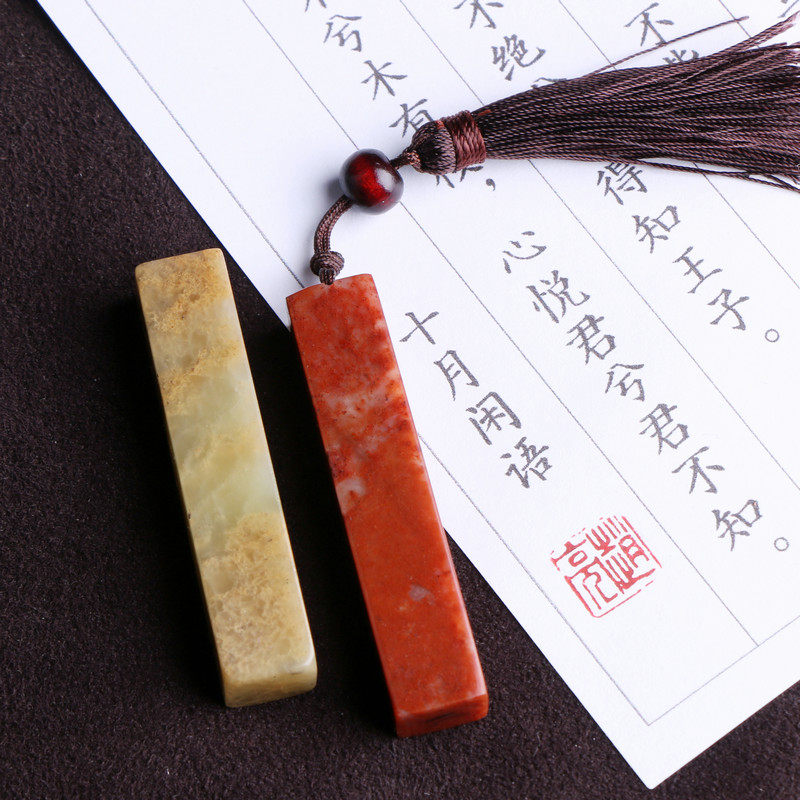 不
不绝 得知王子。
兮木有枝，心悦君兮君不知。
十月闲语